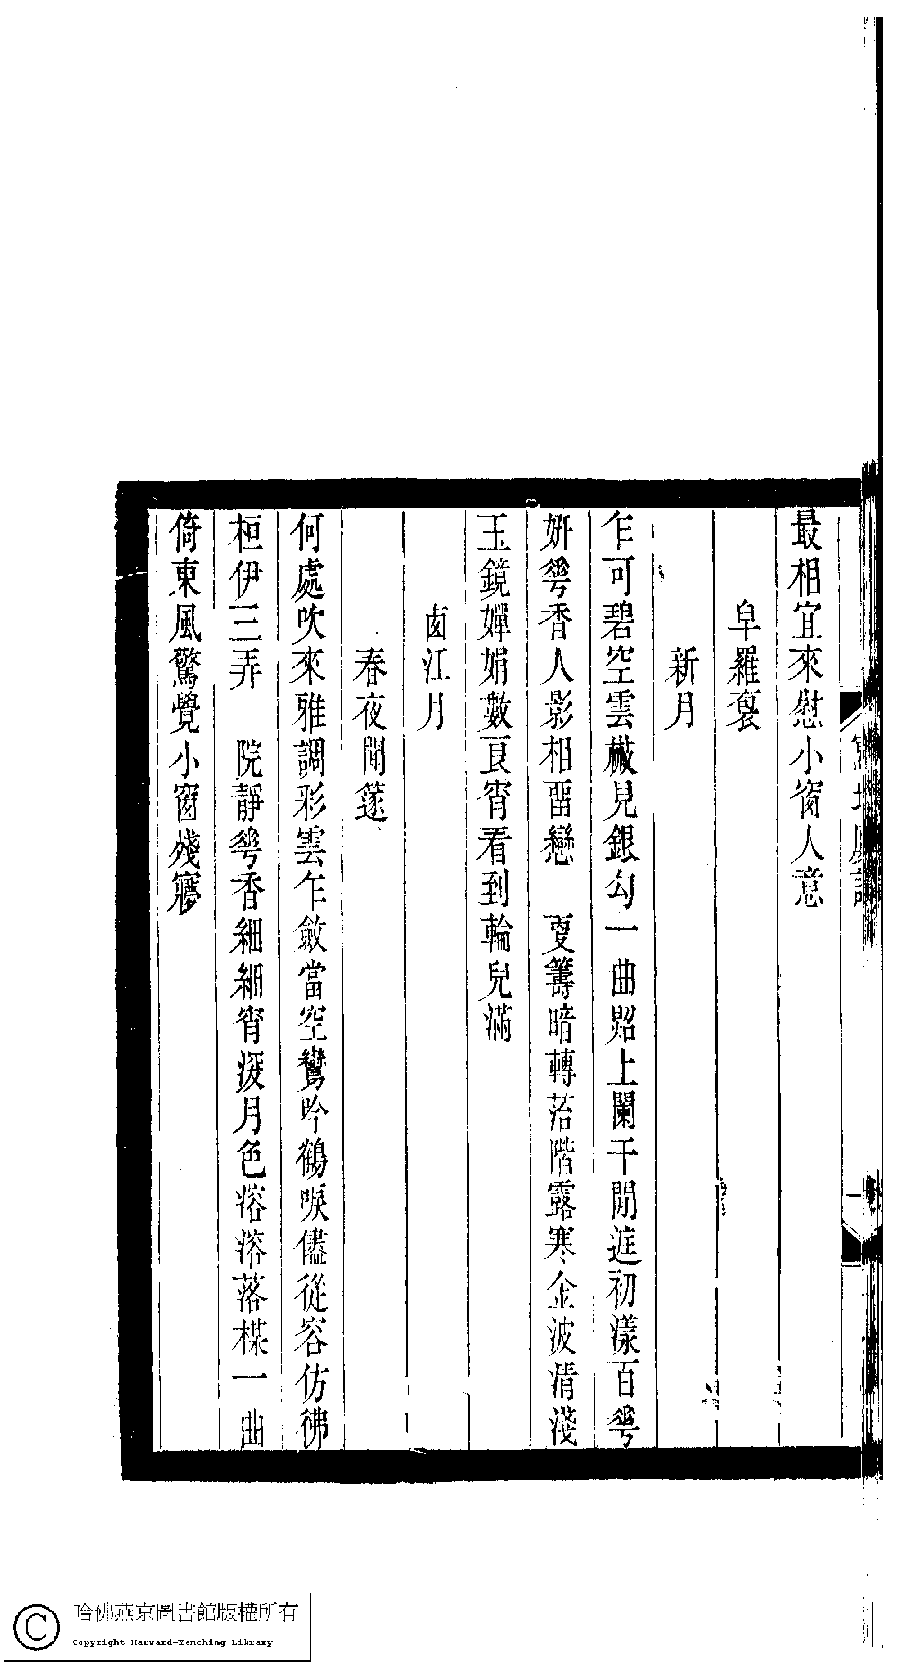 最相宜來慰小窗人意
皁羅襃
新月
乍可碧空雲檅見銀勾一曲照上闌干閒庭初漾百蕚
妍蕚香人影相畱戀　㪅籌暗轉苔階露寒金波清淺
玉鏡嬋娟數良宵看到輪兒滿
卤江月
春夜聞篴
何處吹來雅調彩雲乍斂當空鸞吟鶴唳儘從容仿彿
桓伊三弄　院靜蕚香細細宵深月色溶溶落楳一曲
倚東風驚覺小窗殘㝱
哈佛燕京圖書館版權所有
Copyright Harvard-Yenching Library